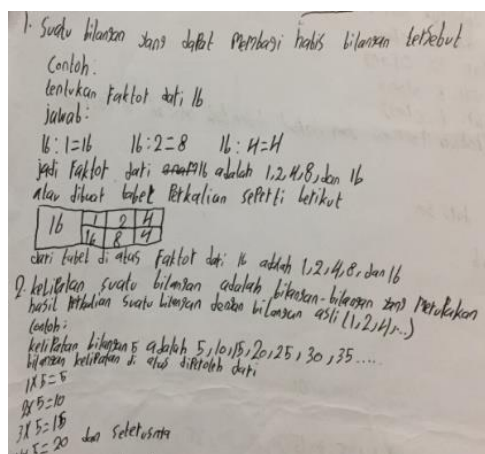 1. Suatu bilangan yang dapat membagi habis bilangan tersebut
Contoh:
tentukan faktor dari 16
jawab:
16:1=16 16:2=8 16:4=4
jadi faktor dari 16 adalah 1,2,4,8, dan 16
atau dibuat tabel Perkalian seperti berikut
16 1 2 4
16 8 4
dari tabel di atas faktor dari 16 adalah 1,2,4,8, dan 16
2. kelipatan suatu bilangan adalah bilangan-bilangan yang merupakan
hasil perkalian suatu bilangan dengan bilangan asli (1,2,4,...)
Contoh:
kelipatan bilangan 5 adalah 5,10,15,20,25,30,35.....
bilangan kelipatan di atas diperoleh dari
1x5=5
2x5=10
3x5=15
4x5=20 dan seterusnya